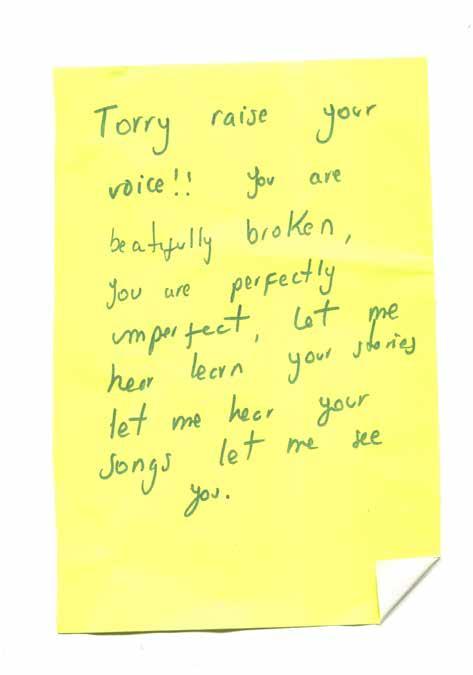 Torry raise your
voice!! You are
beatifully broken,
You are perfectly
imperfect, let me
hear learn your stories
let me hear your
songs let me see
you.